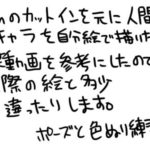 のカットインを元に人間
キャラを自分絵で描いた
動画を参考にしたので
際の絵と多少
違ったりします。
ポーズと色ぬり練習